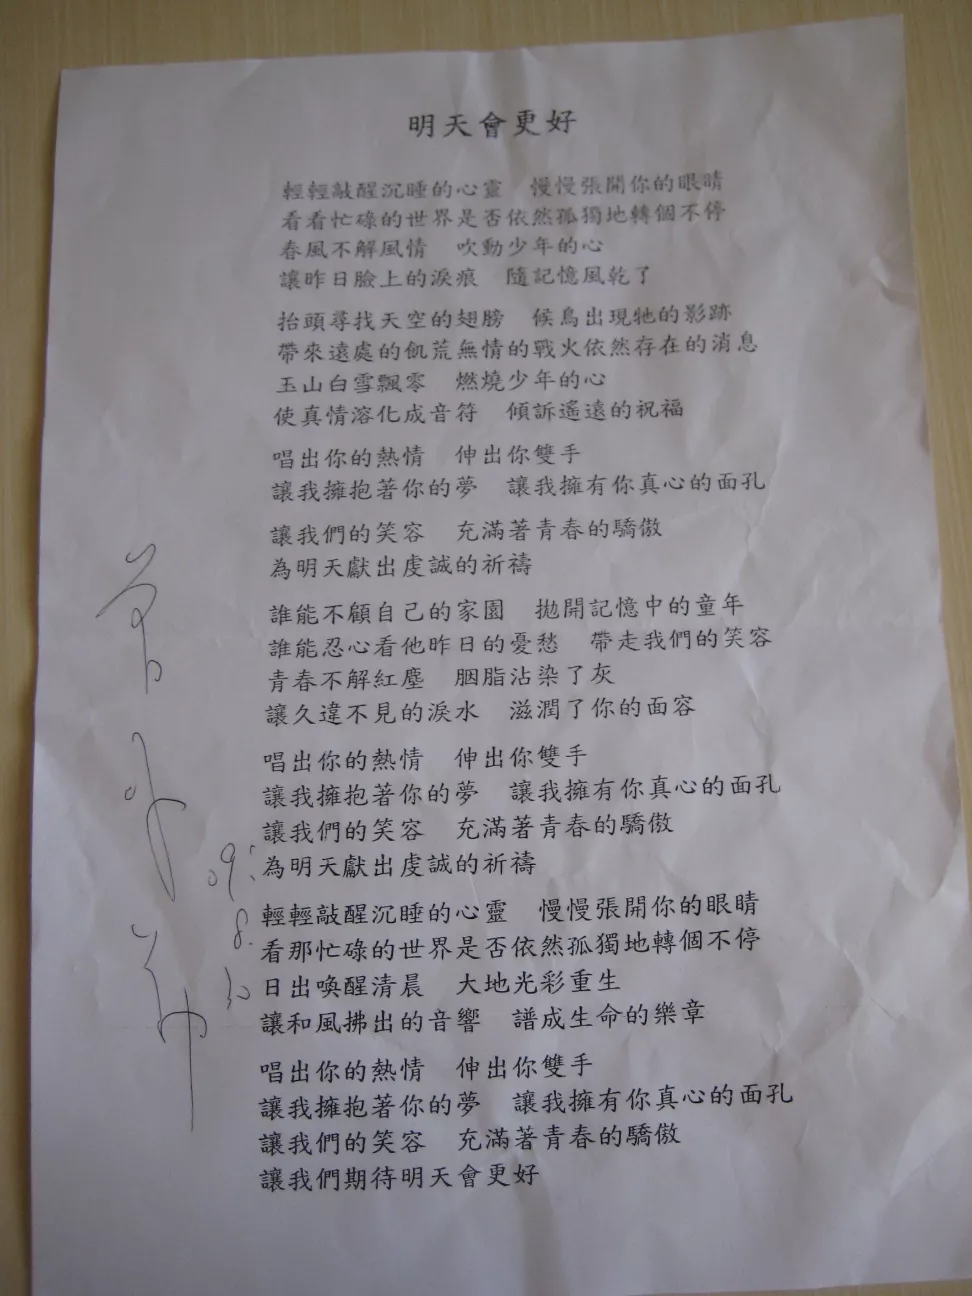 明天會更好
輕輕敲醒沉睡的心靈　慢慢張開你的眼睛
看看忙碌的世界是否依然孤獨地轉個不停
春風不解風情　吹動少年的心
讓昨日臉上的淚痕　隨記憶風乾了
抬頭尋找天空的翅膀　候鳥出現牠的影跡
帶來遠處的飢荒無情的戰火依然存在的消息
玉山白雪飄零　燃燒少年的心
使真情溶化成音符　傾訴遙遠的祝福
唱出你的熱情　伸出你雙手
讓我擁抱著你的夢　讓我擁有你真心的面孔
讓我們的笑容　充滿著青春的驕傲
為明天獻出虔誠的祈禱
誰能不顧自己的家園　拋開記憶中的童年
誰能忍心看他昨日的憂愁　帶走我們的笑容
青春不解紅塵　胭脂沾染了灰
讓久違不見的淚水　滋潤了你的面容
唱出你的熱情　伸出你雙手
讓我擁抱著你的夢　讓我擁有你真心的面孔
讓我們的笑容　充滿著青春的驕傲
為明天獻出虔誠的祈禱
輕輕敲醒沉睡的心靈　慢慢張開你的眼睛
看那忙碌的世界是否依然孤獨地轉個不停
日出喚醒清晨　大地光彩重生
讓和風拂出的音響　譜成生命的樂章
唱出你的熱情　伸出你雙手
讓我擁抱著你的夢　讓我擁有你真心的面孔
讓我們的笑容　充滿著青春的驕傲
讓我們期待明天會更好
09.
8.